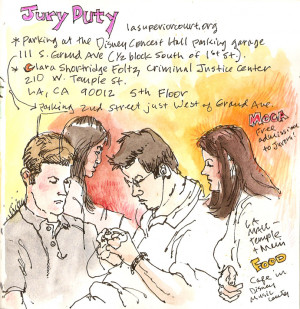 Jury Duty lasuperiorcourt.org
* Parking at the Disney Concert Hall parking garage
111 S. Grand Ave (1/2 block South of 1st St.).
* Clara Shortridge Foltz Criminal Justice Center
210 W. Temple St.
LA, CA 90012 5th Floor
> Parking 2nd Street just West of Grand Ave.
MOCA
Free
admission
to Jurors
LA
Mall
Temple
+ Main
FOOD
Cafe in
Disney
Music
Center